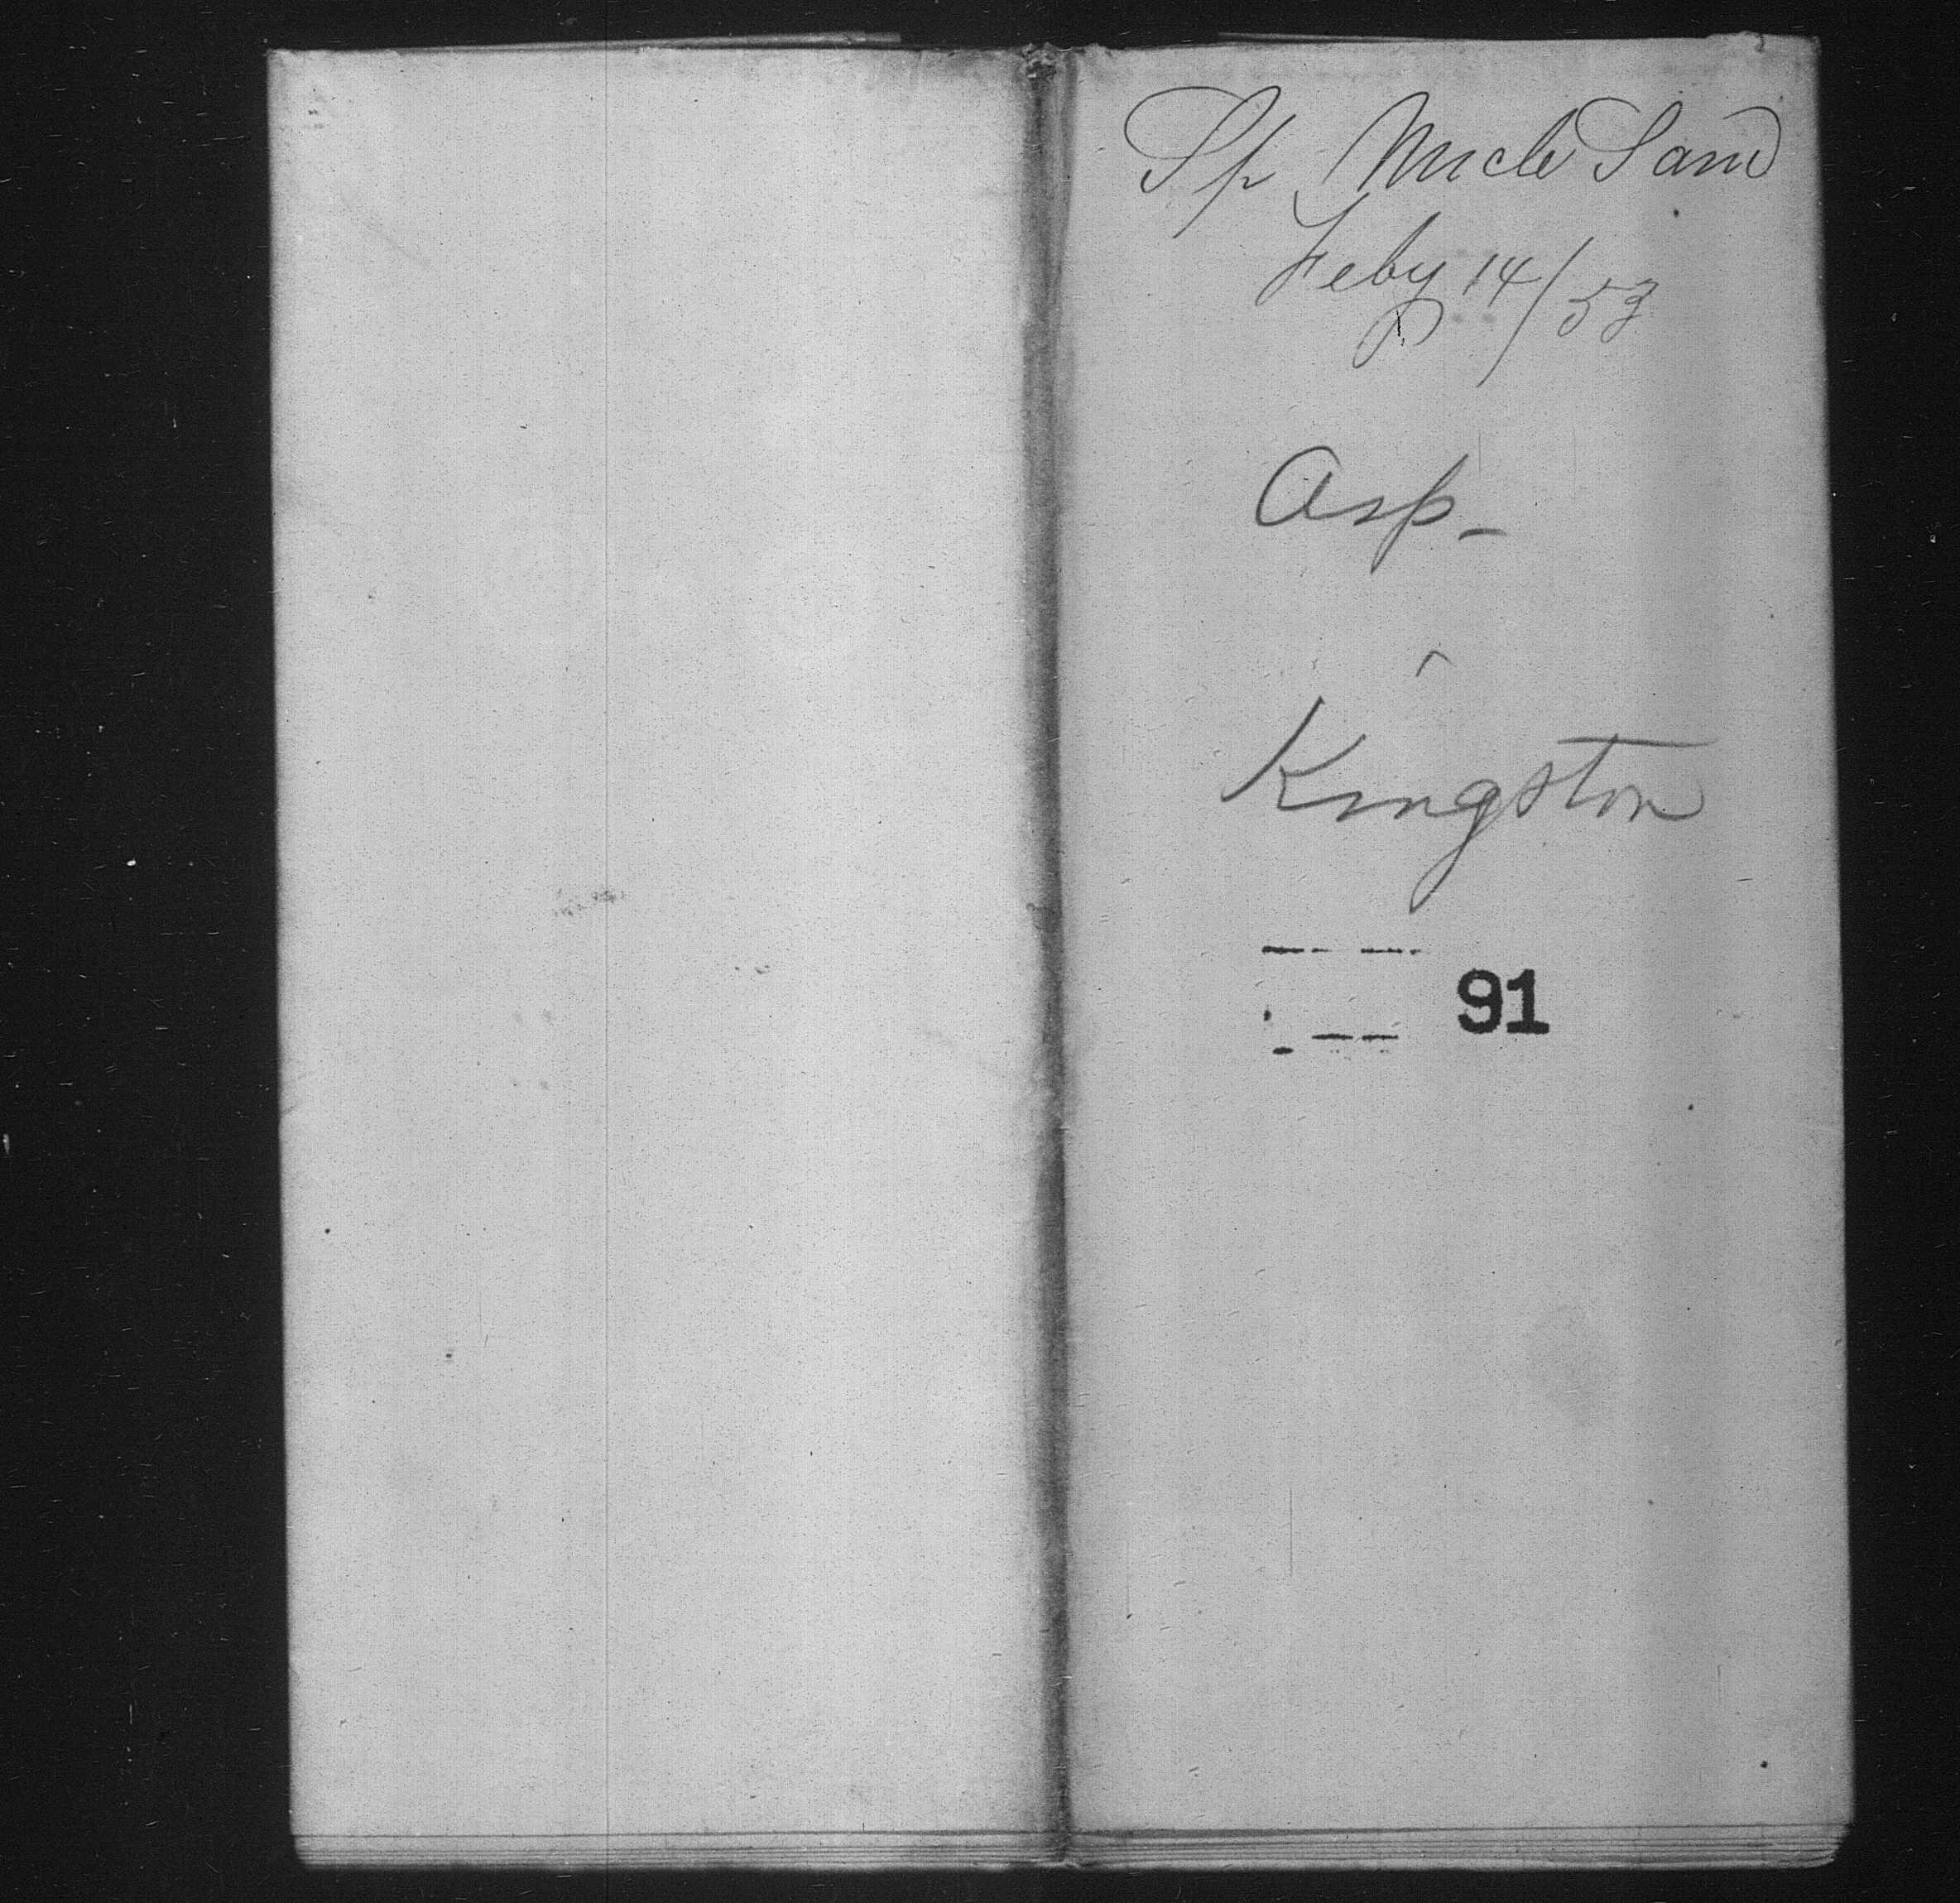 Sp Uncle Sam
Feby 14/53
Asp-
Kingston
91